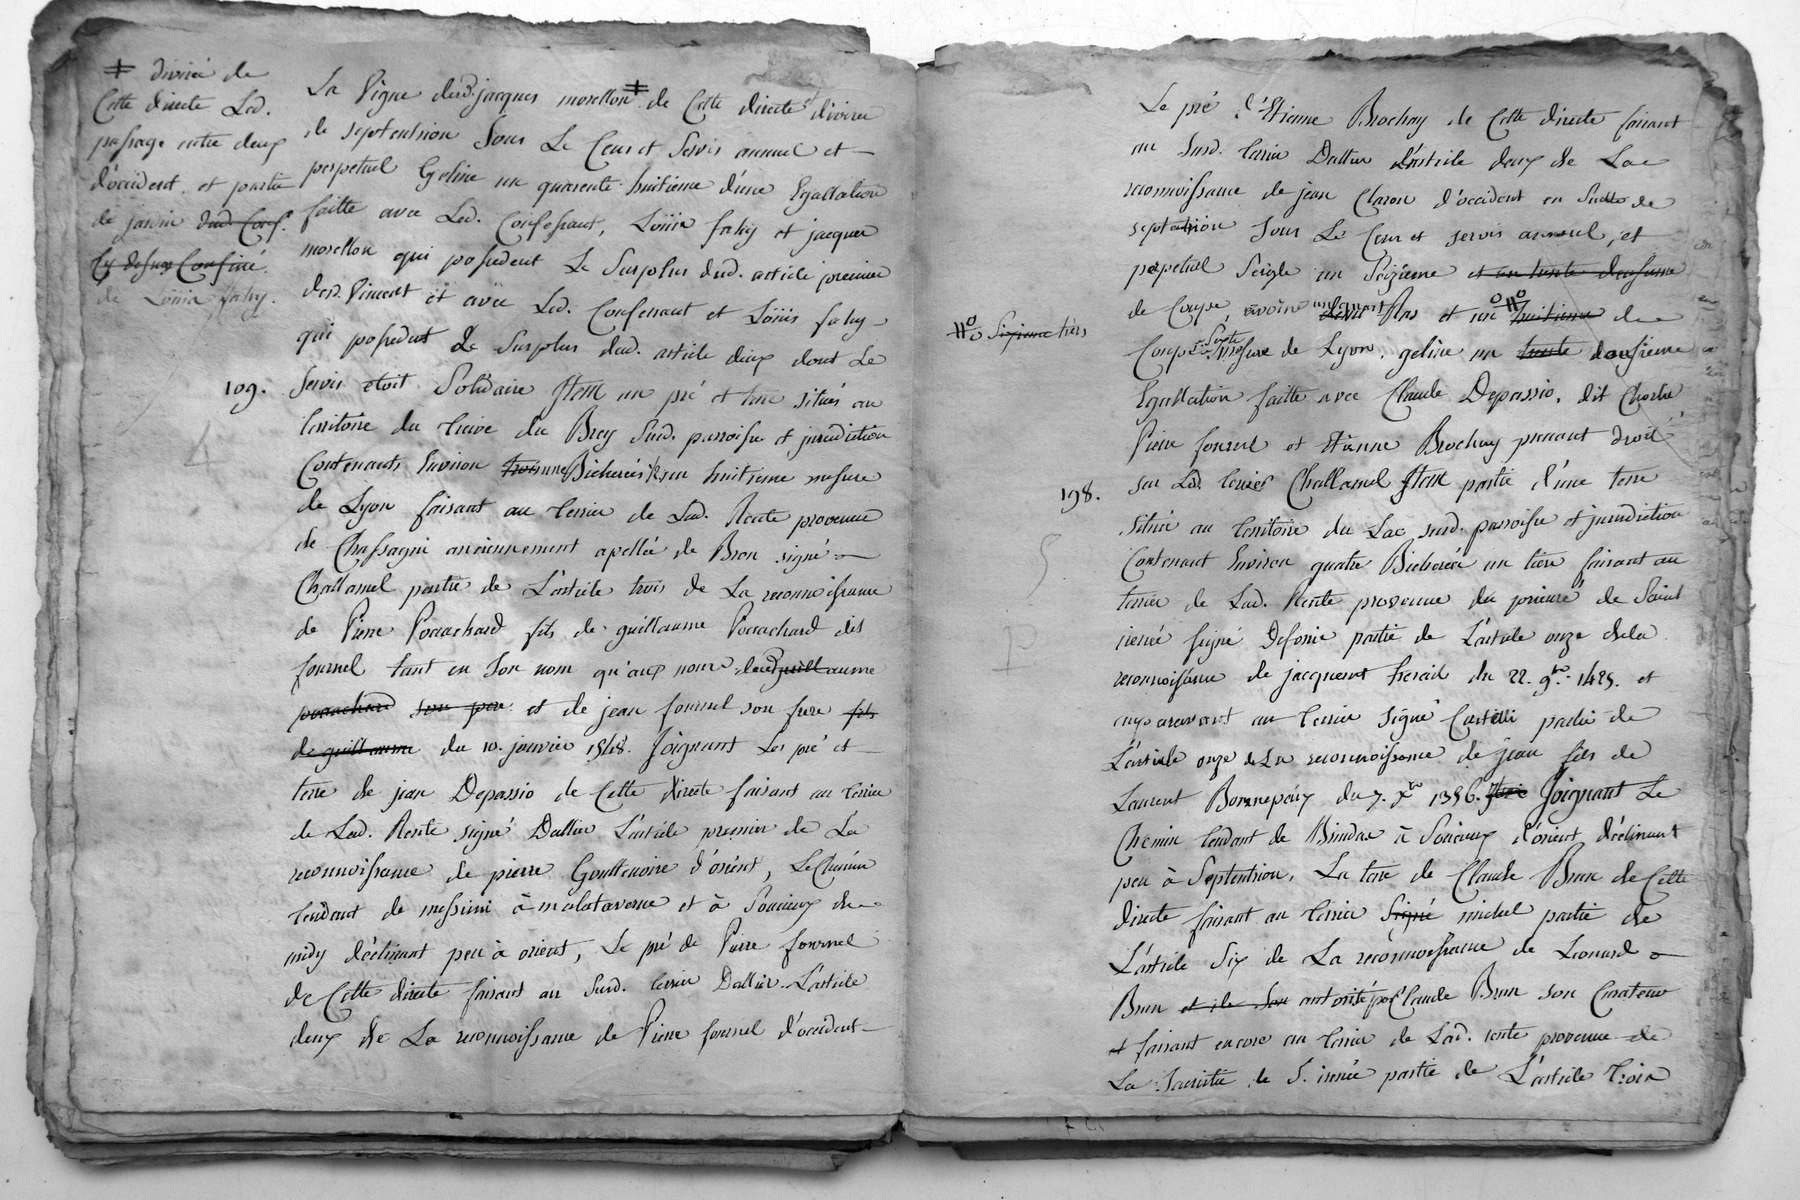 ‡ divisé de
Cette directe Led.
passage entre deux
d'occident, et partie
de jardin dud. Conf.
Cy dessus Confiné.
de Loüis fahy.
La Vigne dud. jacques morellon ‡ de Cette directe divisée
de septentrion Sous Le Cens et Servis annuel et
perpetuel Geline un quarente huitieme d'une Egallation
faitte avec Led. Confessant, Loüis fahy et jacques
morellon qui possedent Le Surplus dud. article premier
dud. Vincent et avec Led. Confessant et Loüis fahy
qui possedent Le Surplus dud. article deux dont Le
109. Servis etoit Solidaire Item un pré et terre situés au
territoire du Treive du Brey Sud. parroisse et jurisdiction
Contenants Environ trois une Bicherées un huitieme mesure
de Lyon faisant au Terrier de Lad. Rente provenue
de Chassagni anciennement apellée de Bron signé
Challamel partie de L'article trois de La reconnoissance
de Pierre Porrachard fils de guillaume Porrachard dis
fournel tant en Son nom qu'aux noms dud. guillaume
porrachard son pere et de jean fournel son frere fils
de guillaume du 10. janvier 1548. Joignant Les pré et
terre de jean Depassio de Cette directe faisant au terrier
de Lad. Rente signé Dallier L'article premier de La
reconnoissance de pierre Gouttenoire d'orient, Le Chemin
tendant de messimi à malataverne et à Soucieux de
midy déclinant peu à orient, Le pré de Pierre fournel
de Cette directe faisant au Sud. terrier Dallier L'article
deux de La reconnoissance de Pierre fournel d'occident
Le pré d'Etienne Brochay de Cette directe faisant
au Sud. terrier Dallier L'article deux de La
reconnoissance de jean Claron d'occident en Suitte de
septentrion Sous Le Cens et servis annuel, et
perpetuel Seigle un Seizieme et un trente deuxieme
de Coupe, avoine un quart Ras et un huitieme de
Coupe Susdte Mesure de Lyon, geline un trente douzieme
Sixieme tiers
Egallation faitte avec Claude Depassio, dit Charle
Pierre fournel et Etienne Brochay prenant droit
198. sur Led. terrier Challamel Item partie d'une terre
située au territoire du Lac sud. parroisse et jurisdiction
Contenant Environ quatre Bicherées un tiers faisant au
terrier de Lad. Rente provenue du prieuré de Saint
irenée signé Defonie partie de L'article onze de la
reconnoissance de jacquemet du 22. 9bre 1425. et
auparavant au terrier Signé Castelli partie de
L'article onze de La reconnoissance de jean fils de
Laurent Bonnepaix du 7. Xbre 1386. Joignant Le
Chemin tendant de à Soucieux d'orient déclinant
peu à Septentrion, La terre de Claude Brun de Cette
directe faisant au terrier Signé michel partie de
L'article Six de La reconnoissance de Leonard
Brun et de Son autorité par Claude Brun son Curateur
et faisant encore au terrier de Lad. rente provenue de
La Sacristie de S. irenée partie de L'article trois